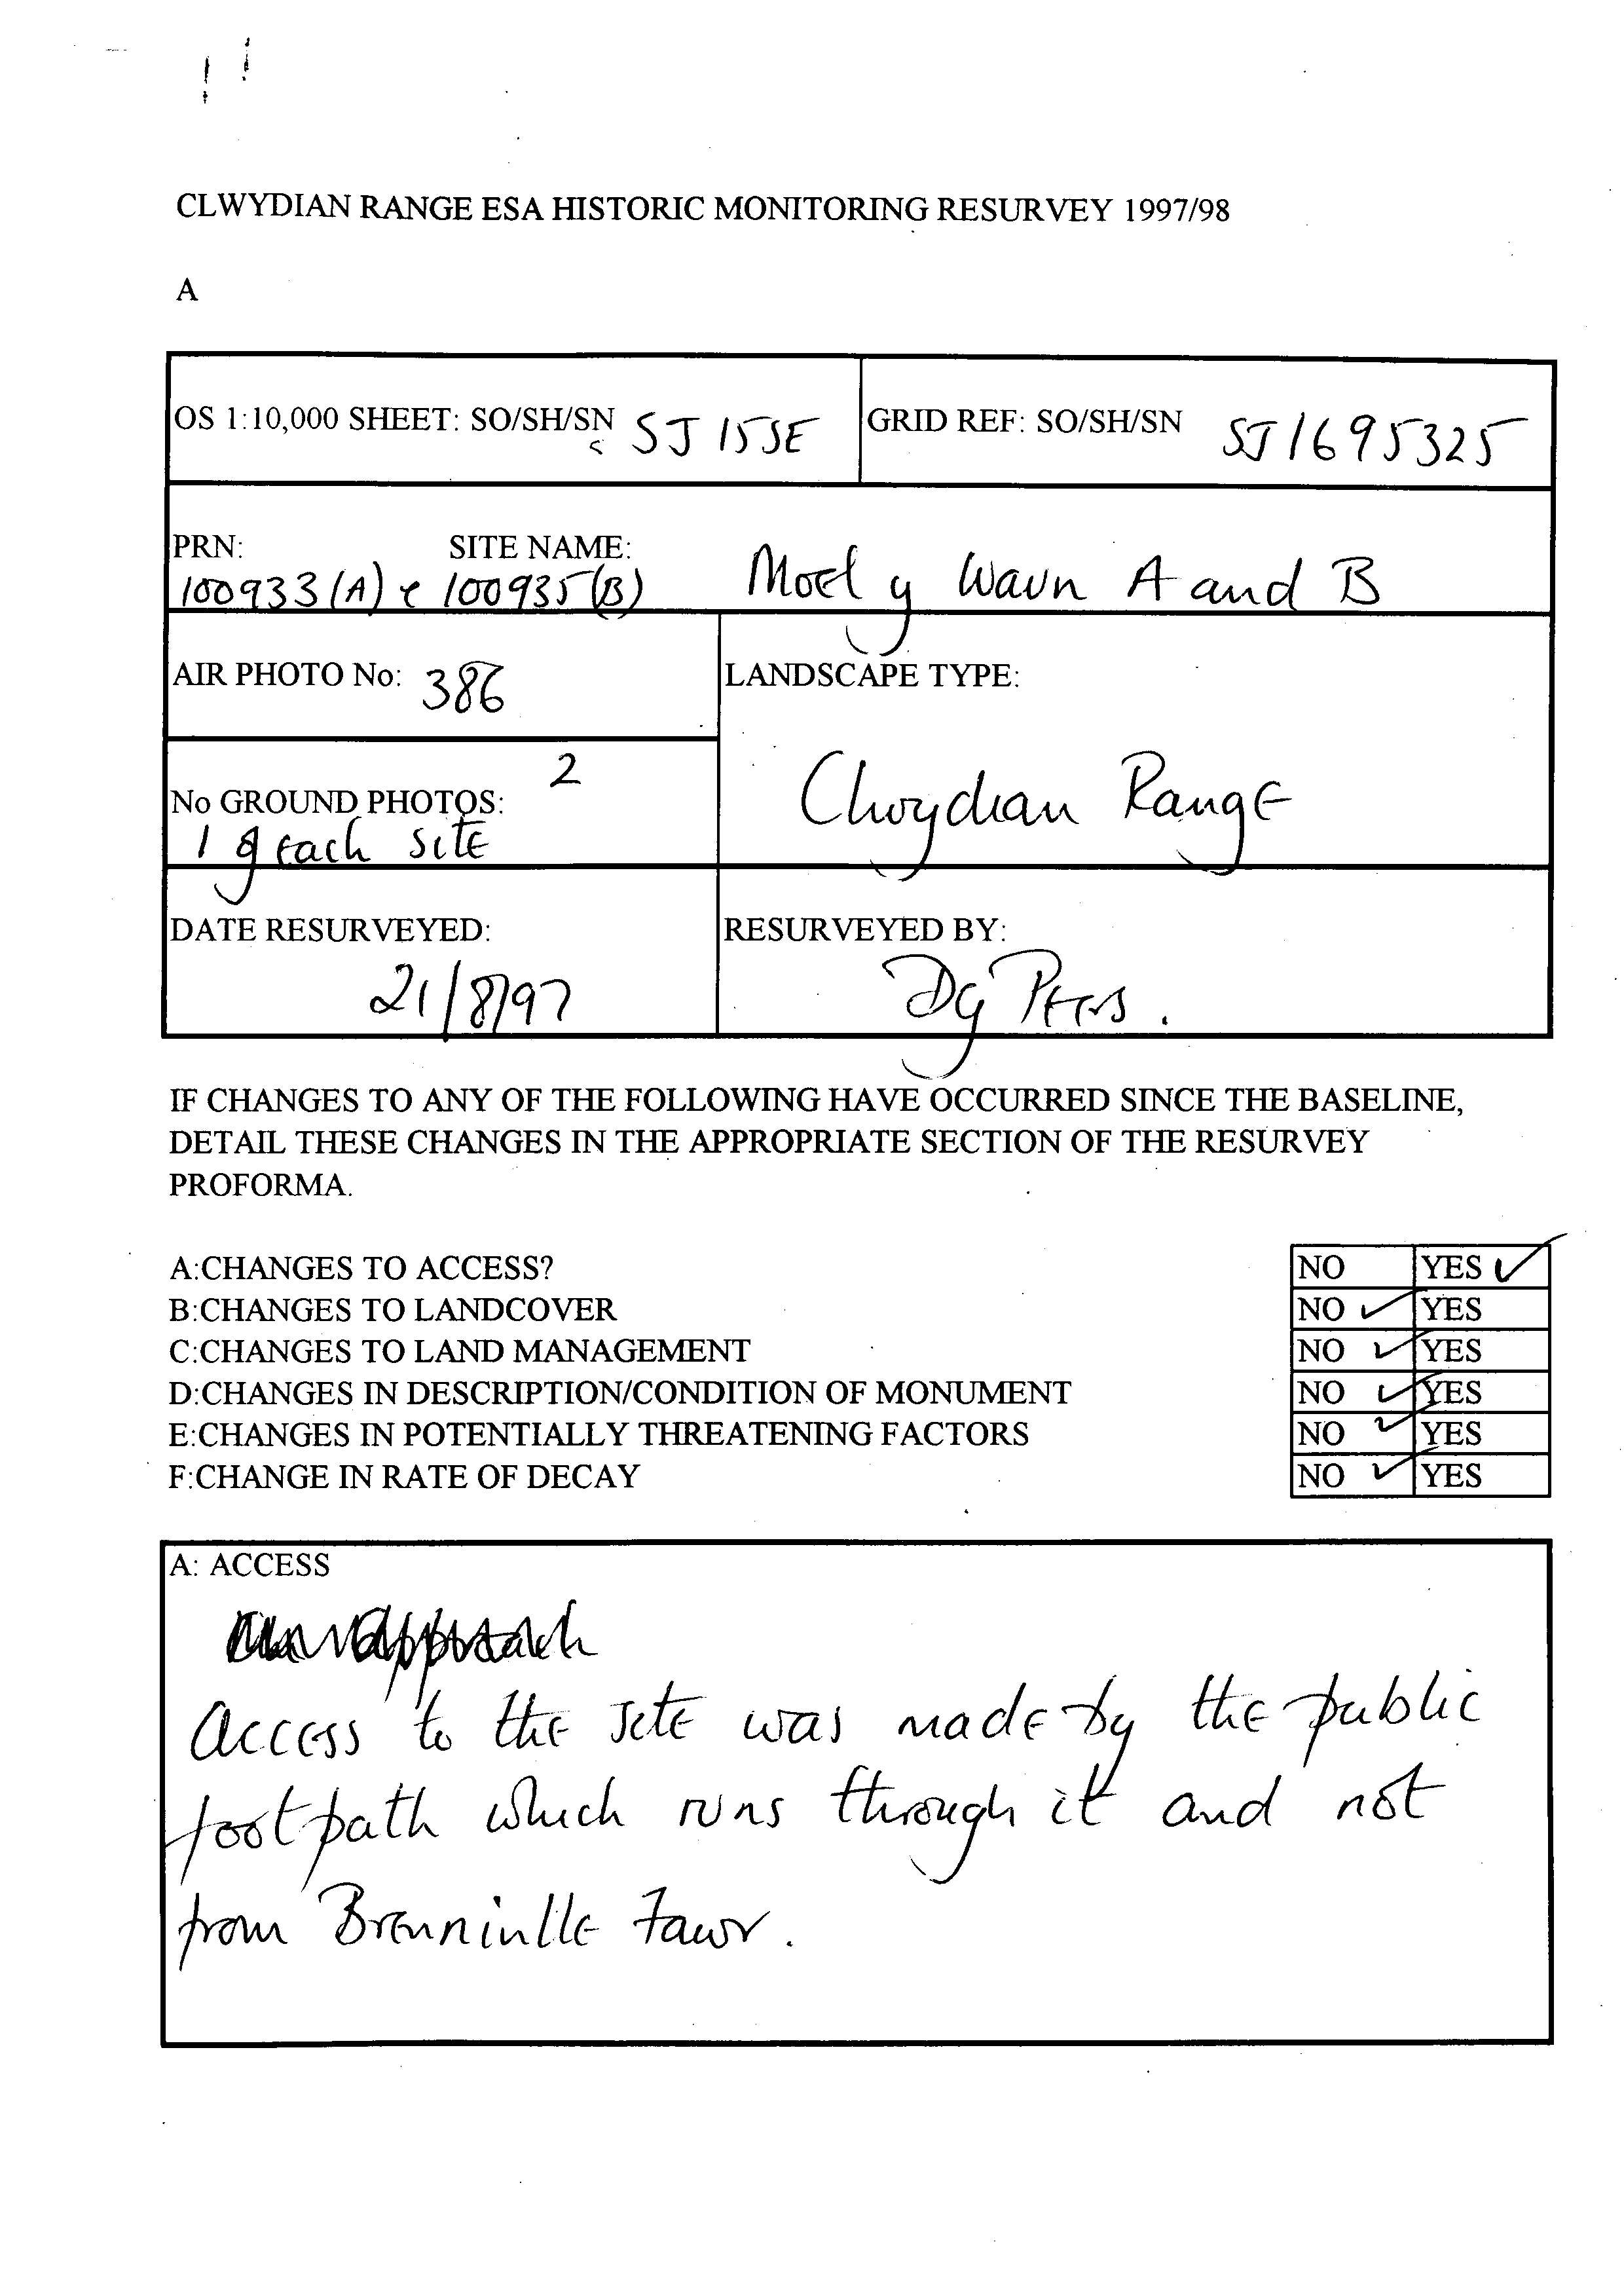 CLWYDIAN RANGE ESA HISTORIC MONITORING RESURVEY 1997/98
A
OS 1:10,000 SHEET: SO/SH/SN SJ 15SE
GRID REF: SO/SH/SN SJ1695325
PRN: SITE NAME:
100933(A) & 100935(B) Moel y Waun A and B
AIR PHOTO No: 386
LANDSCAPE TYPE:
Clwydian Range
No GROUND PHOTOS: 2
1 of each site
DATE RESURVEYED:
21/8/97
RESURVEYED BY:
IF CHANGES TO ANY OF THE FOLLOWING HAVE OCCURRED SINCE THE BASELINE,
DETAIL THESE CHANGES IN THE APPROPRIATE SECTION OF THE RESURVEY
PROFORMA.
A:CHANGES TO ACCESS? NO YES ✓
B:CHANGES TO LANDCOVER NO ✓ YES
C:CHANGES TO LAND MANAGEMENT NO ✓ YES
D:CHANGES IN DESCRIPTION/CONDITION OF MONUMENT NO ✓ YES
E:CHANGES IN POTENTIALLY THREATENING FACTORS NO ✓ YES
F:CHANGE IN RATE OF DECAY NO ✓ YES
A: ACCESS
Access to the site was made by the public
footpath which runs through it and not
from Fawr.